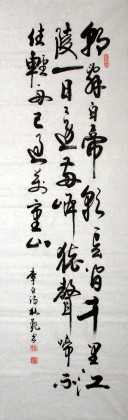 朝辭白帝彩雲間千里江
陵一日還兩岸猿聲啼不
住輕舟已過萬重山
李白詩